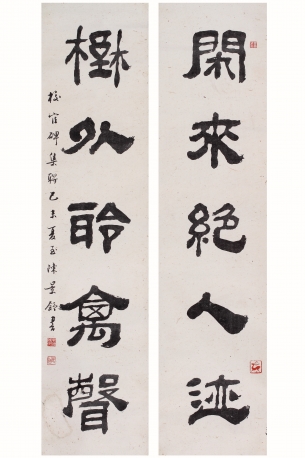 閑來絕人迹
樹外聆禽聲
校官碑集聯己未夏至陳景舒書